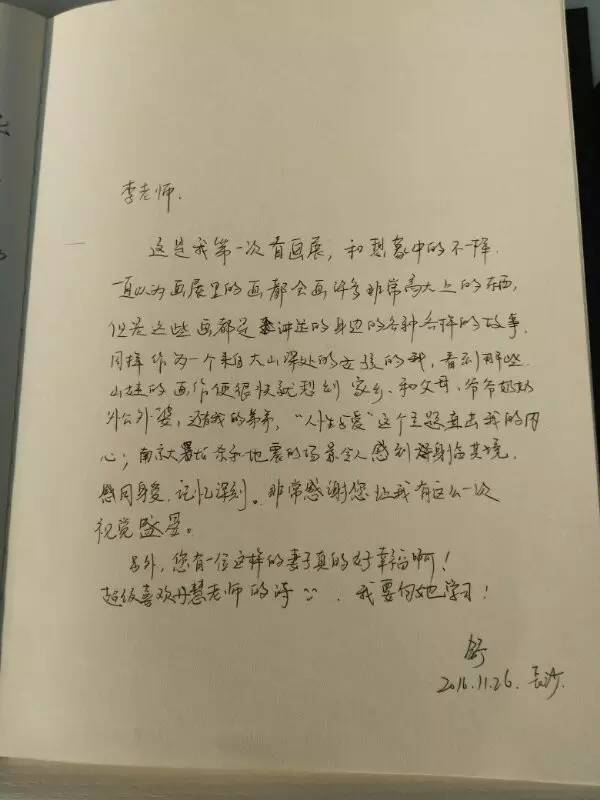 李老师,
这是我第一次看画展，和想象中的不一样.
一直以为画展里的画都会画许多非常高大上的东西,
但是这些画都是讲述的身边的各种各样的故事.
同样作为一个来自大山深处的女孩的我，看到那些
山娃的画作便很快就想到家乡、和父母、爷爷奶奶
外公外婆，还有我的弟弟，“人性与爱”这个主题直击我的内
心；南京大屠杀和地震的场景令人感到身临其境,
感同身受，记忆深刻。非常感谢您让我有这么一次
视觉盛宴。
另外，您有一位这样的妻子真的好幸福啊！
超级喜欢丹慧老师的诗 我要向她学习！
舒
2016.11.26. 长沙.